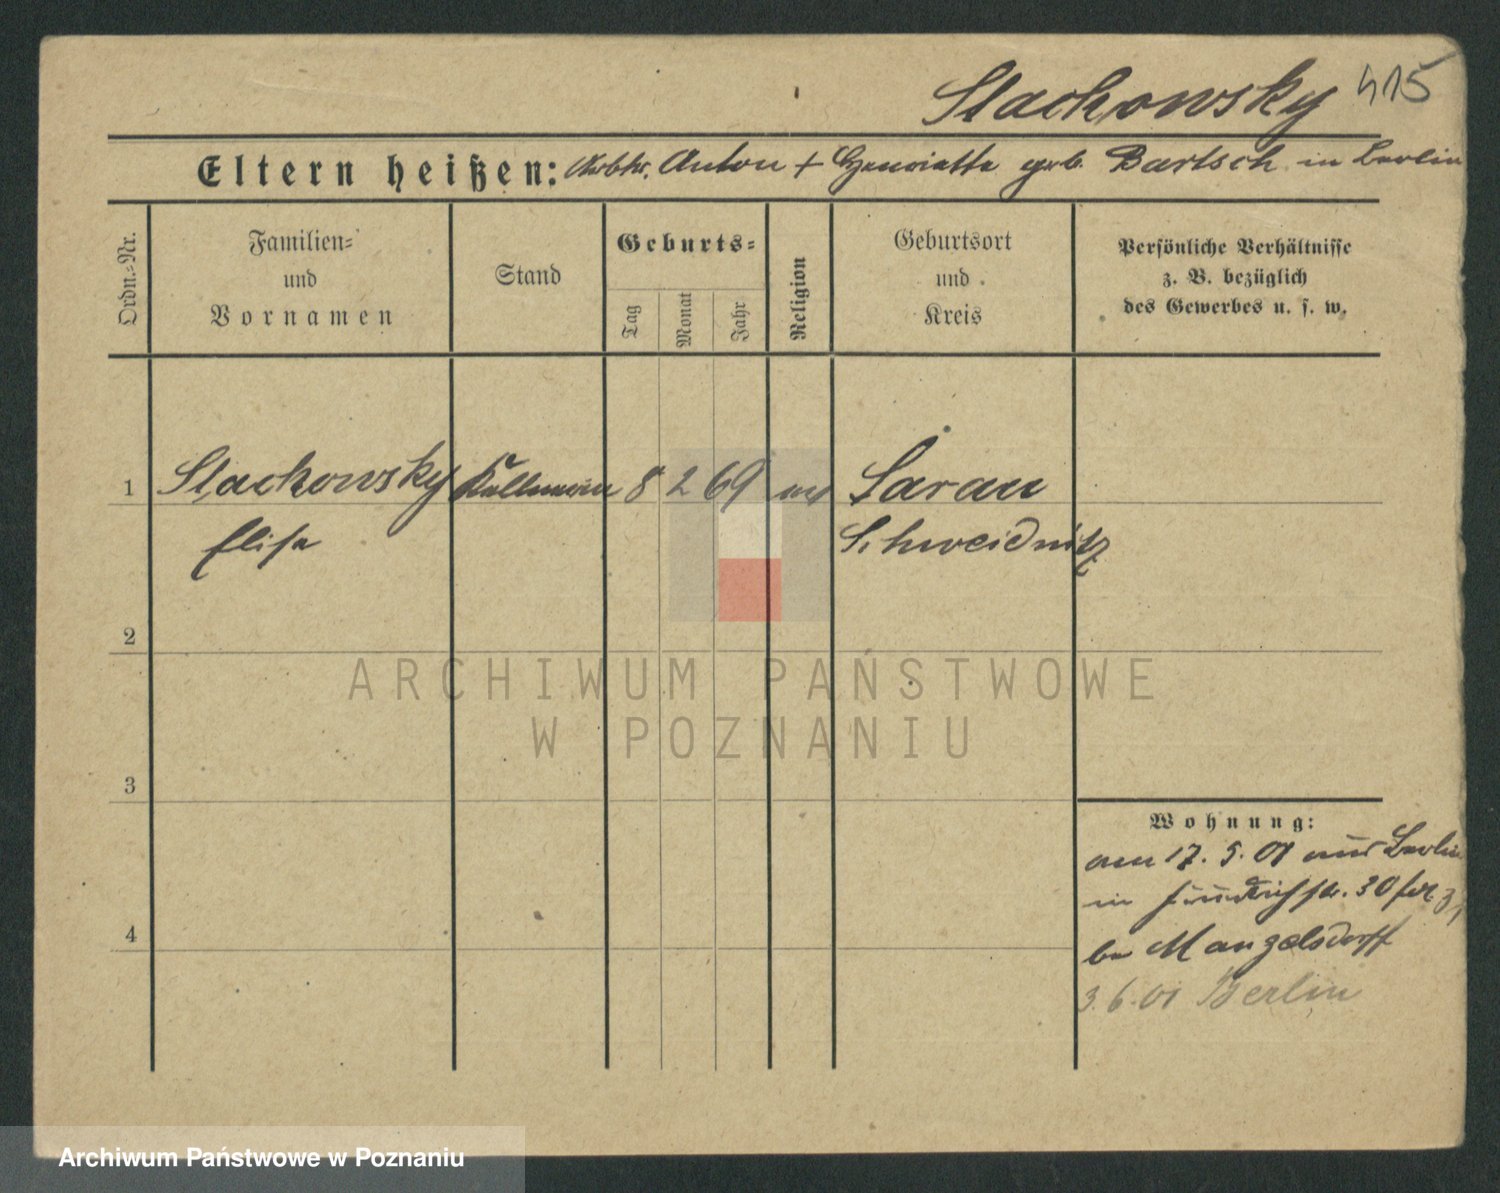 Slachowsky 415
Eltern heißen: Arbtr. Anton + Henriette geb. Bartsch in Berlin
Ordn.-Nr.
Familien-
und
Vornamen
Stand
Geburts-
Tag
Monat
Jahr
Religion
Geburtsort
und
Kreis
Persönliche Verhältnisse
z. B. bezüglich
des Gewerbes u. s. w.
1 Slachowsky Kellnerin 8 2 69 ev Sarau
Elise Schweidnitz
2
ARCHIWUM PAŃSTWOWE
W POZNANIU
3
Wohnung:
am 17. 5. 01 aus Berlin
in 30
4
bei Mangelsdorff
3. 6. 01 Berlin
Archiwum Państwowe w Poznaniu